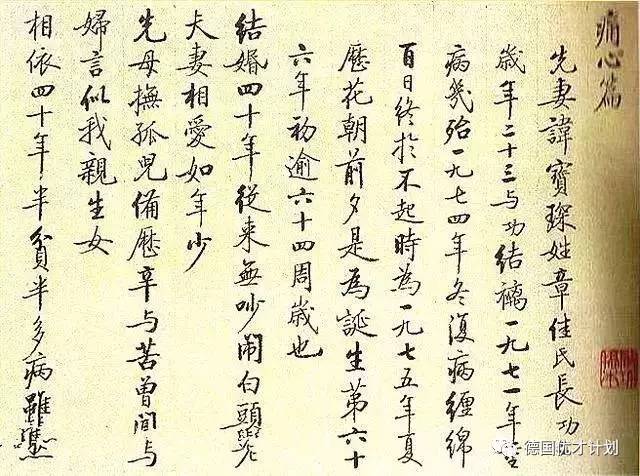 痛心篇
先妻諱寶琛姓章佳氏長功
歲年二十三与功結褵一九七一年
病幾殆一九七四年冬復病纏綿
百日終於不起時為一九七五年夏
歷花朝前夕是為誕生第六十
六年初逾六十四周歲也
結婚四十年從来無吵鬧白頭
夫妻相愛如年少
先母撫孤兒備歷辛与苦曾聞与
婦言似我親生女
相依四十年半貧半多病雖
德国优才计划